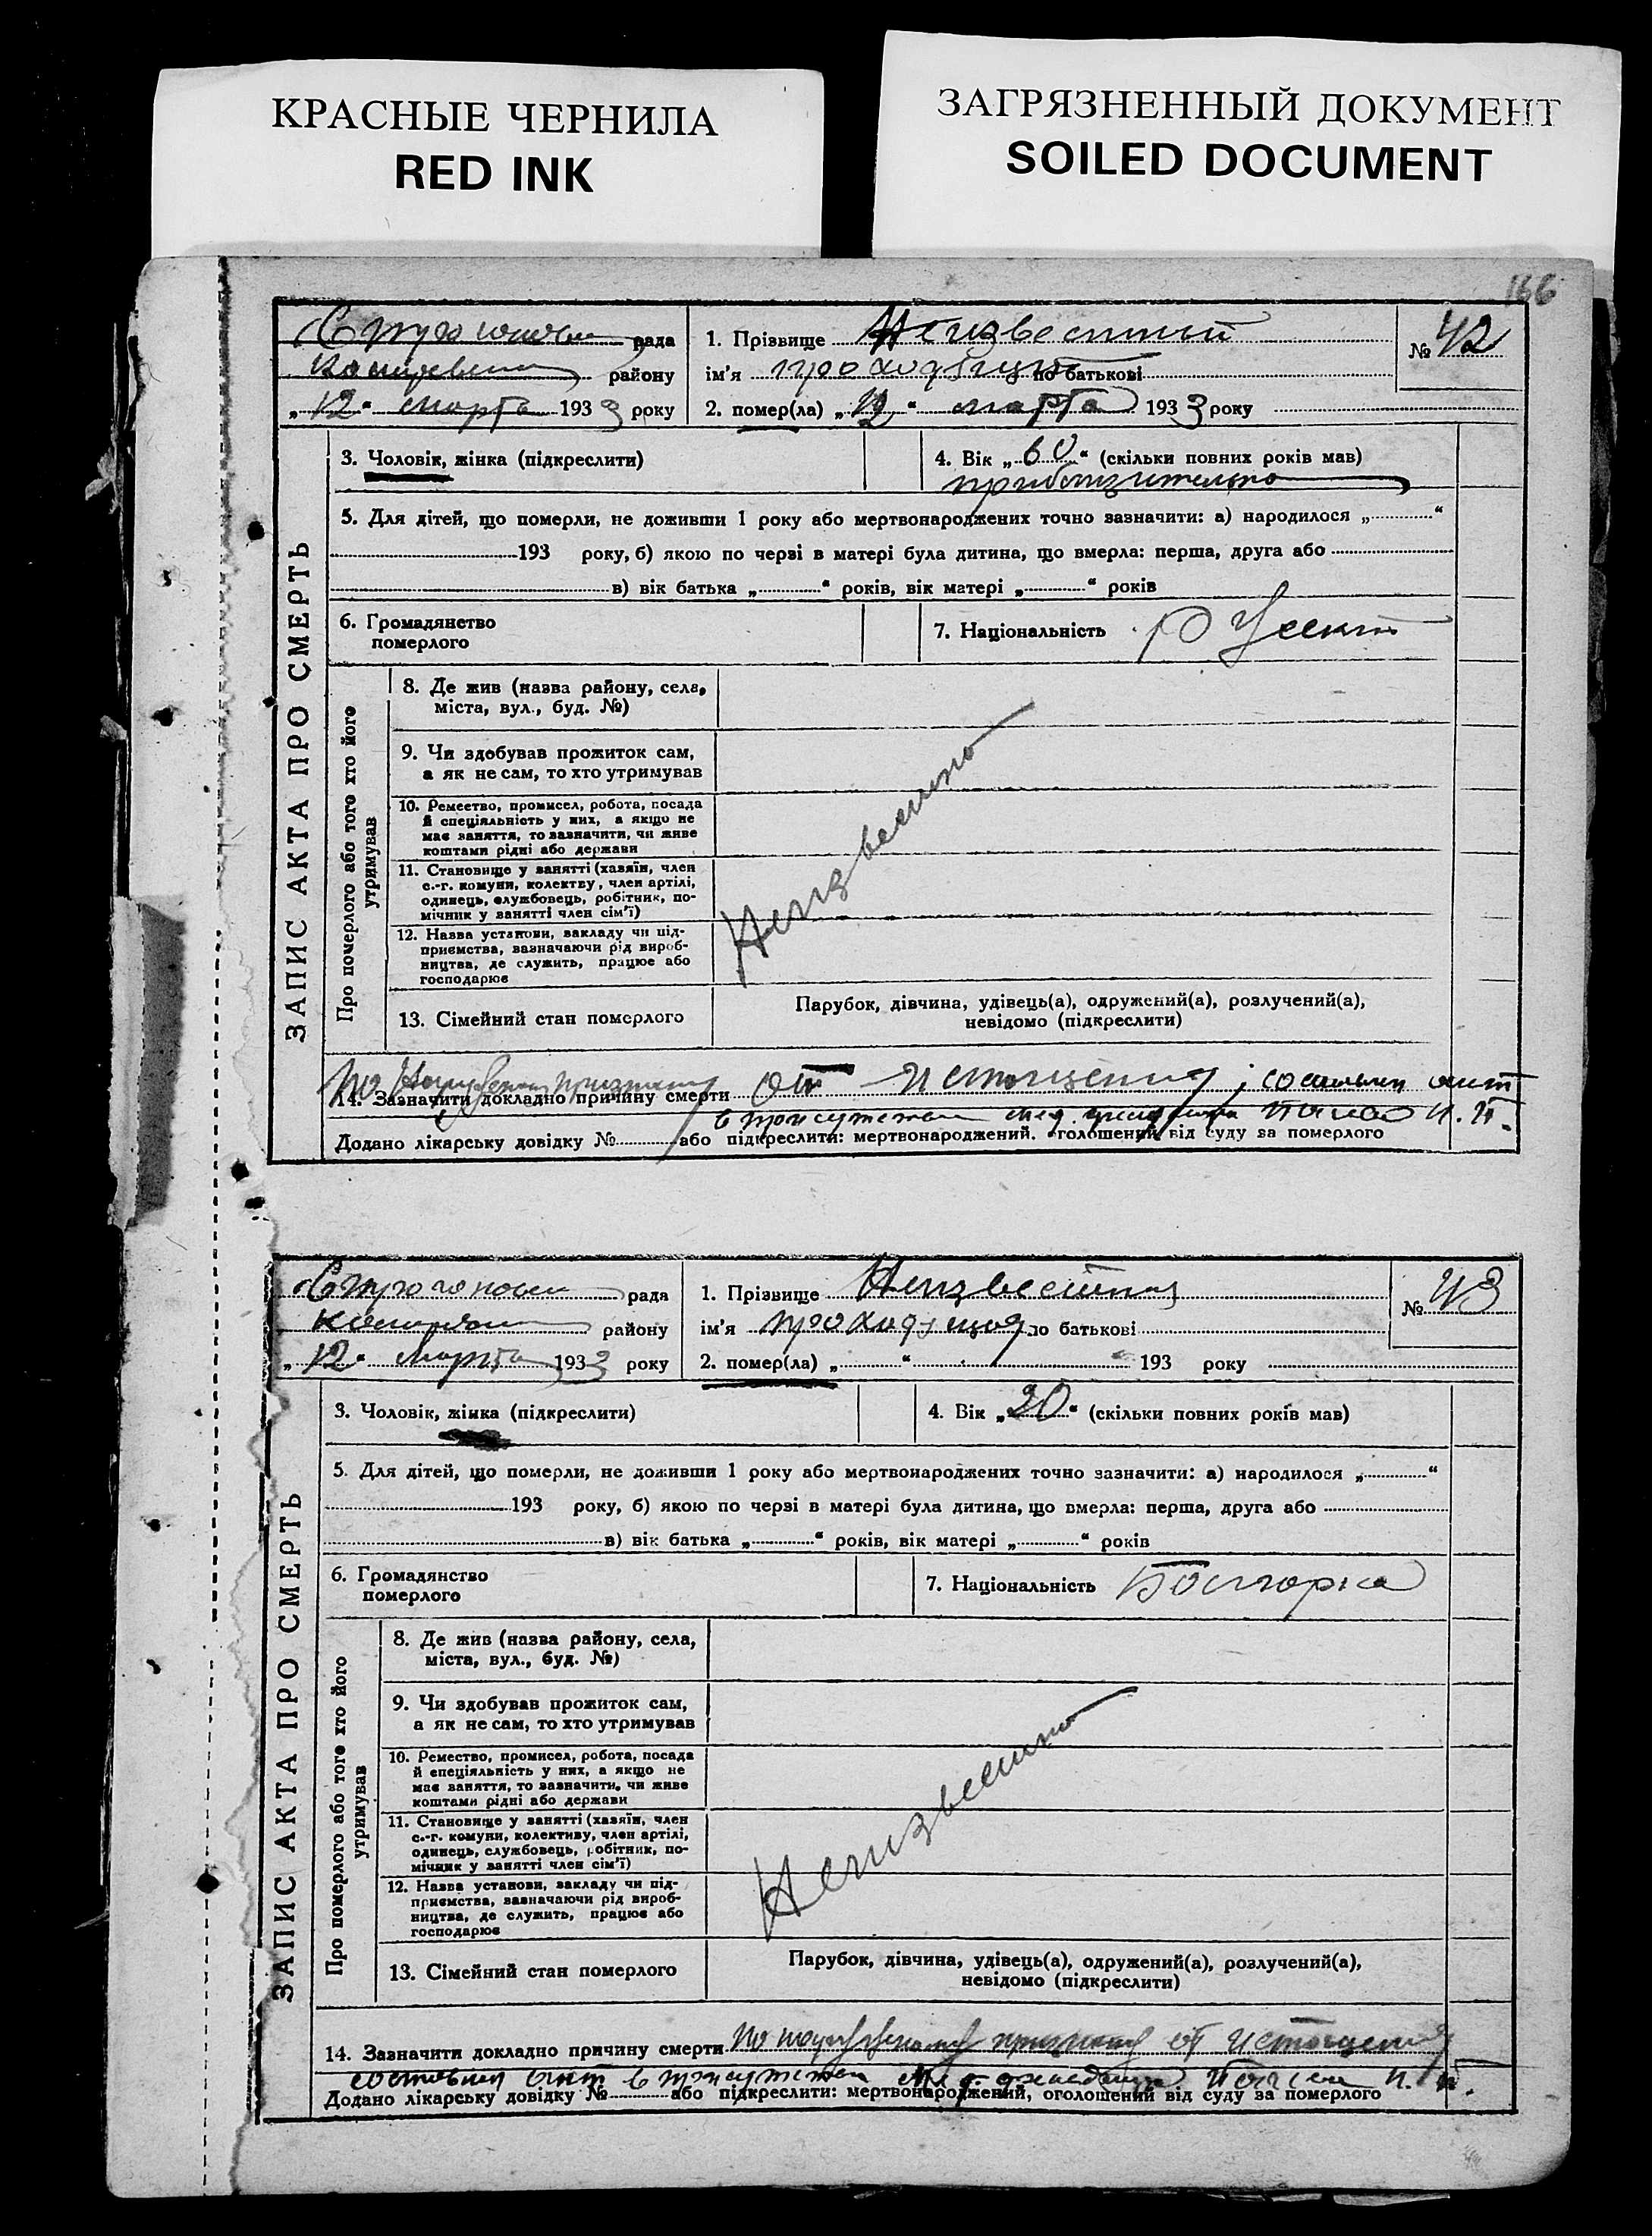 КРАСНЫЕ ЧЕРНИЛА
RED INK
ЗАГРЯЗНЕННЫЙ ДОКУМЕНТ
SOILED DOCUMENT
166
ЗАПИС АКТА ПРО СМЕРТЬ
рада
району
„12“ марта 1933 року
1. Прізвище Неизвестный
ім'я проходящий по батькові
№ 42
2. помер(ла) „12“ марта 1933 року
3. Чоловік, жінка (підкреслити)
4. Вік „60“ (скільки повних років мав)
приблизительно
5. Для дітей, що померли, не доживши 1 року або мертвонароджених точно зазначити: а) народилося „ “
193 року, б) якою по черзі в матері була дитина, що вмерла: перша, друга або
в) вік батька „ “ років, вік матері „ “ років
6. Громадянство
померлого
7. Національність Русский
Про померлого або того хто його
утримував
8. Де жив (назва району, села,
міста, вул., буд. №)
9. Чи здобував прожиток сам,
а як не сам, то хто утримував
10. Ремество, промисел, робота, посада
й спеціяльність у них, а якщо не
має заняття, то зазначити, чи живе
коштами рідні або держави
11. Становище у занятті (хазяїн, член
с.-г. комуни, колектву, член артілі,
одинець, службовець, робітник, по-
мічник у занятті член сім'ї)
12. Назва установи, закладу чи під-
приємства, вазначаючи рід вироб-
ництва, де служить, працює або
господарює
Неизвестно
13. Сімейний стан померлого
Парубок, дівчина, удівець(а), одружений(а), розлучений(а),
невідомо (підкреслити)
14. Зазначити докладно причину смерти от истощения; составлен акт
в присутствии мед.
Додано лікарську довідку № або підкреслити: мертвонароджений. оголошений від суду за померлого
ЗАПИС АКТА ПРО СМЕРТЬ
рада
району
„12“ марта 1933 року
1. Прізвище Неизвестная
ім'я проходящая по батькові
№ 43
2. помер(ла) „ “ 193 року
3. Чоловік, жінка (підкреслити)
4. Вік „20“ (скільки повних років мав)
5. Для дітей, що померли, не доживши 1 року або мертвонароджених точно зазначити: а) народилося „ “
193 року, б) якою по черзі в матері була дитина, що вмерла: перша, друга або
в) вік батька „ “ років, вік матері „ “ років
6. Громадянство
померлого
7. Національність Болгарка
Про померлого або того хто його
утримував
8. Де жив (назва району, села,
міста, вул., буд. №)
9. Чи здобував прожиток сам,
а як не сам, то хто утримував
10. Ремество, промисел, робота, посада
й спеціяльність у них, а якщо не
має заняття, то зазначити, чи живе
коштами рідні або держави
11. Становище у занятті (хазяїн, член
с.-г. комуни, колективу, член артілі,
одинець, службовець, робітник, по-
мічник у занятті член сім'ї)
12. Назва установи, закладу чи під-
приємства, вазначаючи рід вироб-
ництва, де служить, працює або
господарює
Неизвестно
13. Сімейний стан померлого
Парубок, дівчина, удівець(а), одружений(а), розлучений(а),
невідомо (підкреслити)
14. Зазначити докладно причину смерти По наружному признаку от истощения
составлен акт в присутствии мед.
Додано лікарську довідку № або підкреслити: мертвонароджений, оголошений від суду за померлого